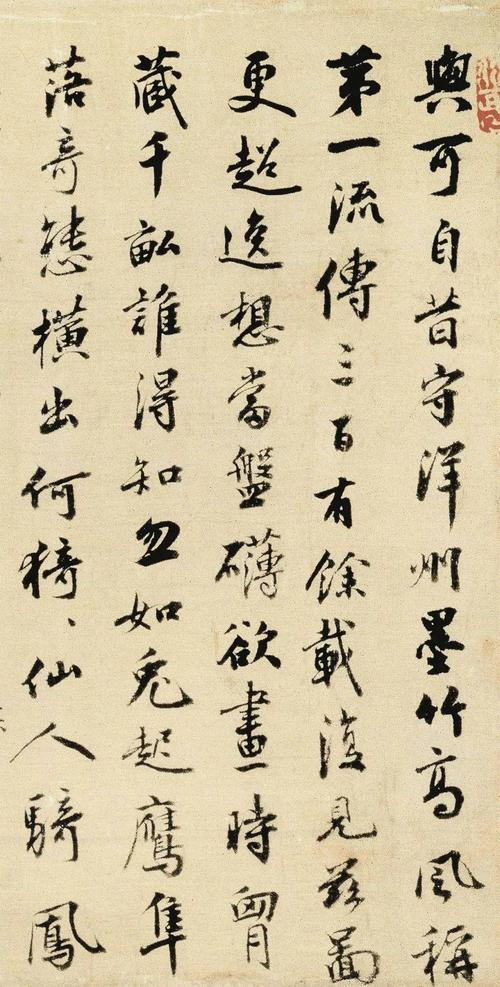 與可自昔守洋州墨竹高風稱
第一流傳三百有餘載復見茲圖
更超逸想當盤礴欲畫時胷
藏千畝誰得知忽如兔起鷹隼
落奇態橫出何猗、仙人騎鳳